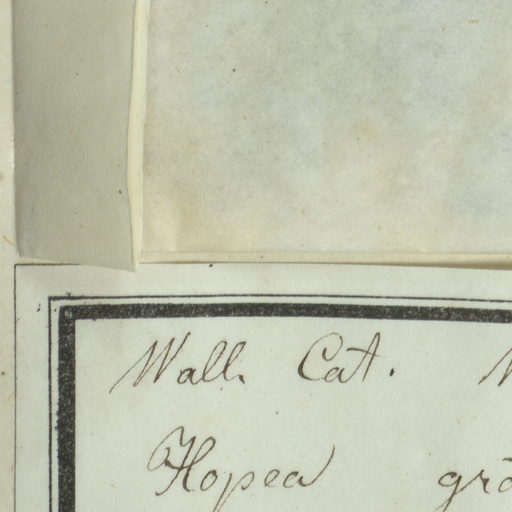 Wall. Cat. N
Hopea gra